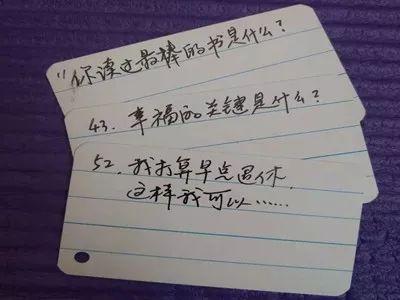 “你读过最棒的书是什么？
43. 幸福的关键是什么？
52. 我打算早点退休，
这样我可以……